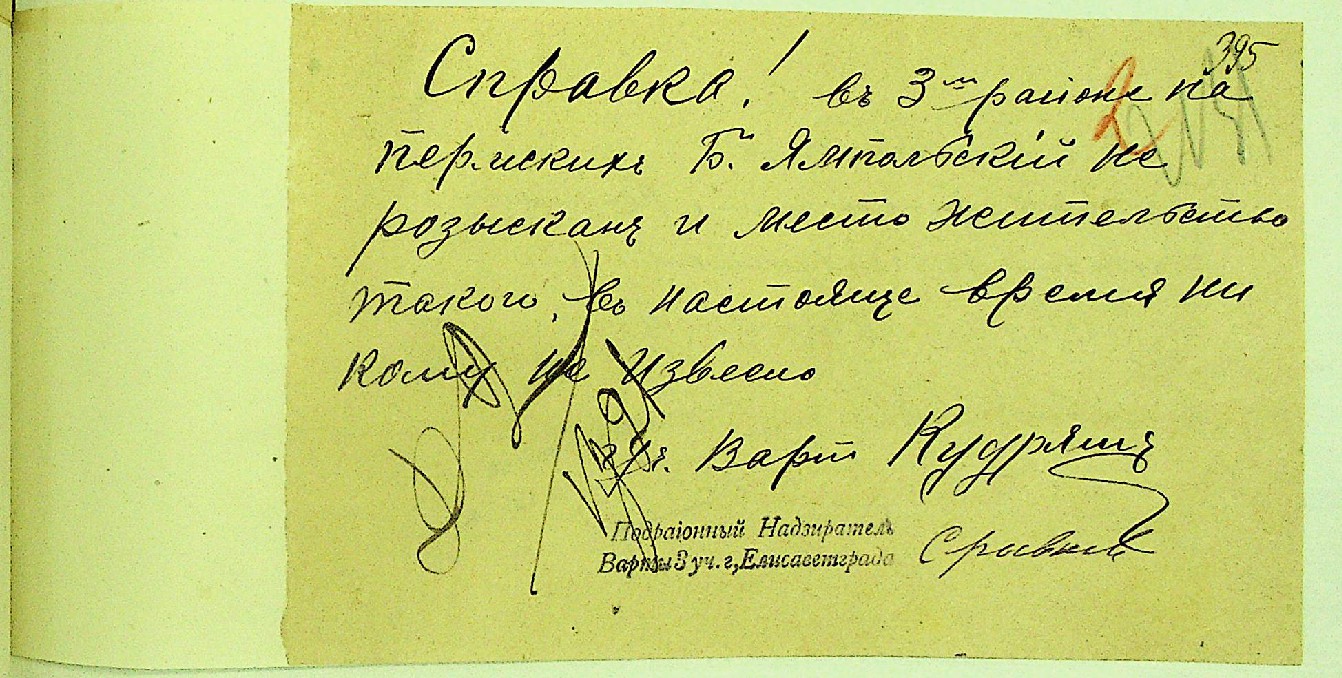 395
Справка! въ 3м районе на
2
пермскихъ Б. Ямпольскій не
розысканъ и место жительство
такого, въ настояще время ни
кому не Извесно
Варт Кудряшъ
Подраіонный Надзиратель
Варты 3 уч. г, Елисаветграда